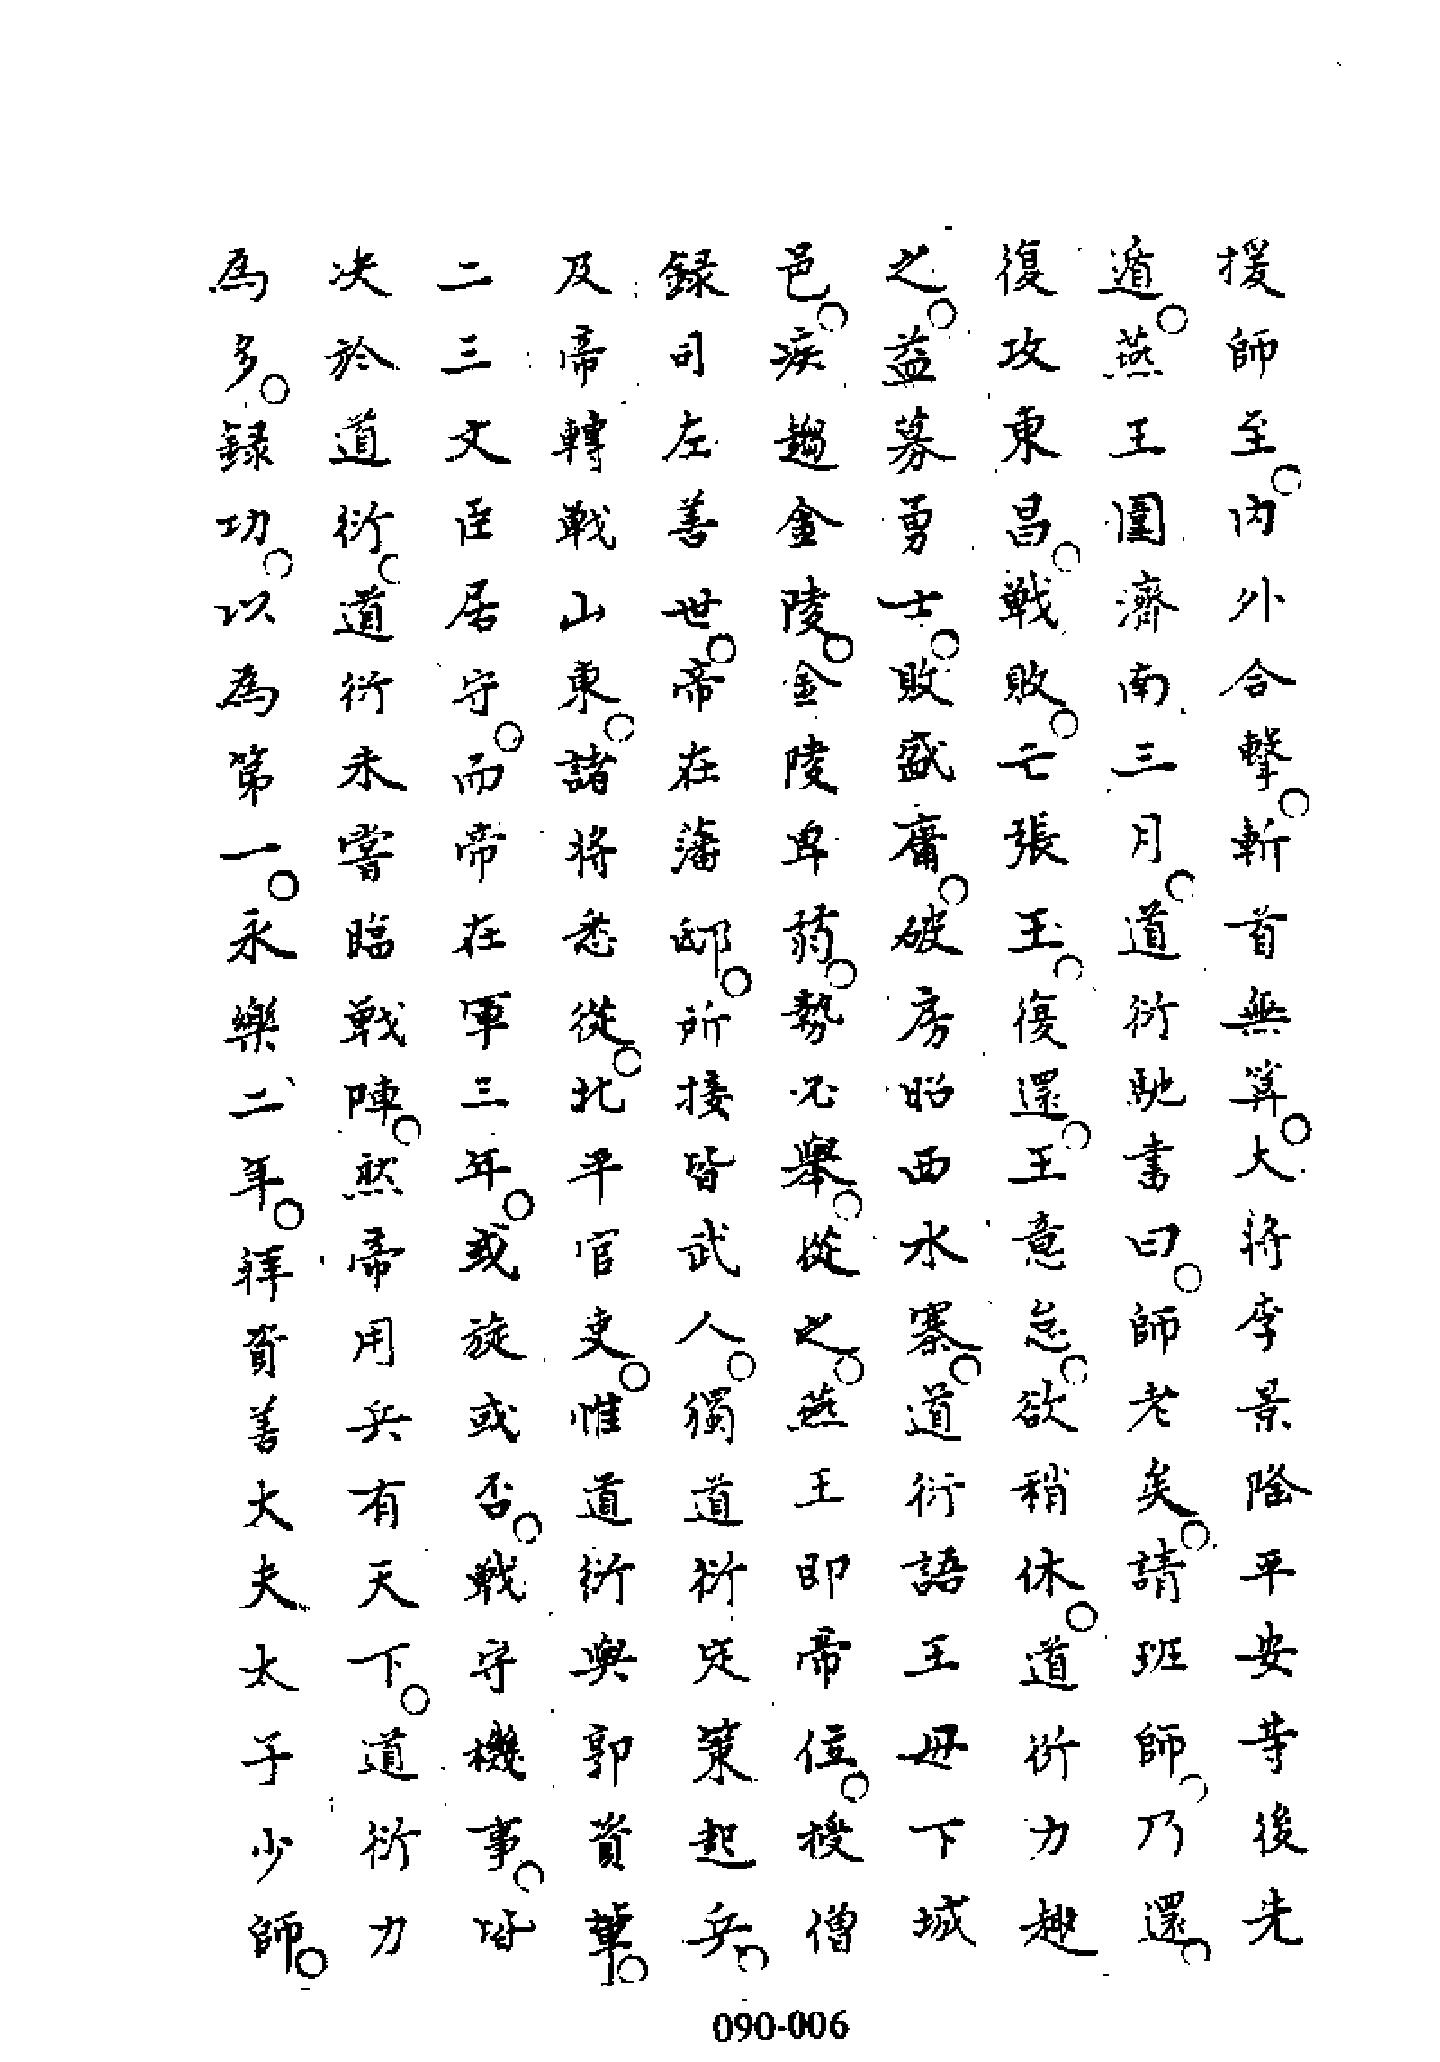 援師至○內外合擊○斬首無算○大將李景隆平安等後先
遁○燕王圍濟南三月○道衍馳書曰○師老矣○請班師○乃還○
復攻東昌○戰敗○亡張玉○復還○王意怠○欲稍休○道衍力趣
之○益募勇士○敗盛庸○破房昭西水寨○道衍語王毋下城
邑○疾趨金陵○金陵單弱○勢必舉○從之○燕王即帝位○授僧
錄司左善世○帝在藩邸○所接皆武人○獨道衍定策起兵○
及帝轉戰山東○諸將悉從○北平官吏○惟道衍與郭資輩○
二三文臣居守○而帝在軍三年○或旋或否○戰守機事○皆
決於道衍○道衍未嘗臨戰陣○然帝用兵有天下○道衍力
為多○錄功○以為第一○永樂二年○拜資善大夫太子少師○
090-006